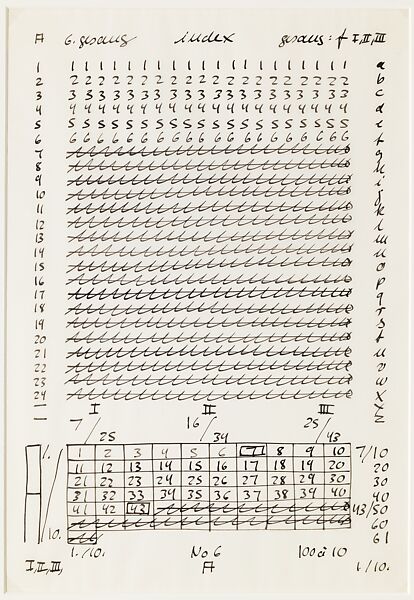 A 6. gesang index gesang: f I, II, III
1 1 1 1 1 1 1 1 1 1 1 1 1 1 1 1 1 1 1 a
2 2 2 2 2 2 2 2 2 2 2 2 2 2 2 2 2 2 2 b
3 3 3 3 3 3 3 3 3 3 3 3 3 3 3 3 3 3 3 c
4 4 4 4 4 4 4 4 4 4 4 4 4 4 4 4 4 4 4 d
5 5 5 5 5 5 5 5 5 5 5 5 5 5 5 5 5 5 5 e
6 6 6 6 6 6 6 6 6 6 6 6 6 6 6 6 6 6 6 f
7 g
8 h
9 i
10 j
11 k
12 l
13 m
14 n
15 o
16 p
17 q
18 r
19 s
20 t
21 u
22 v
23 w
24 x
I II III
7/25 16/34 25/43
1. 1 2 3 4 5 6 7 8 9 10 7/10
11 12 13 14 15 16 17 18 19 20 20
21 22 23 24 25 26 27 28 29 30 30
31 32 33 34 35 36 37 38 39 40 40
41 42 43 43/50
10. 60
61
I, II, III, 1./10. No 6 100 à 10 1./10.
A